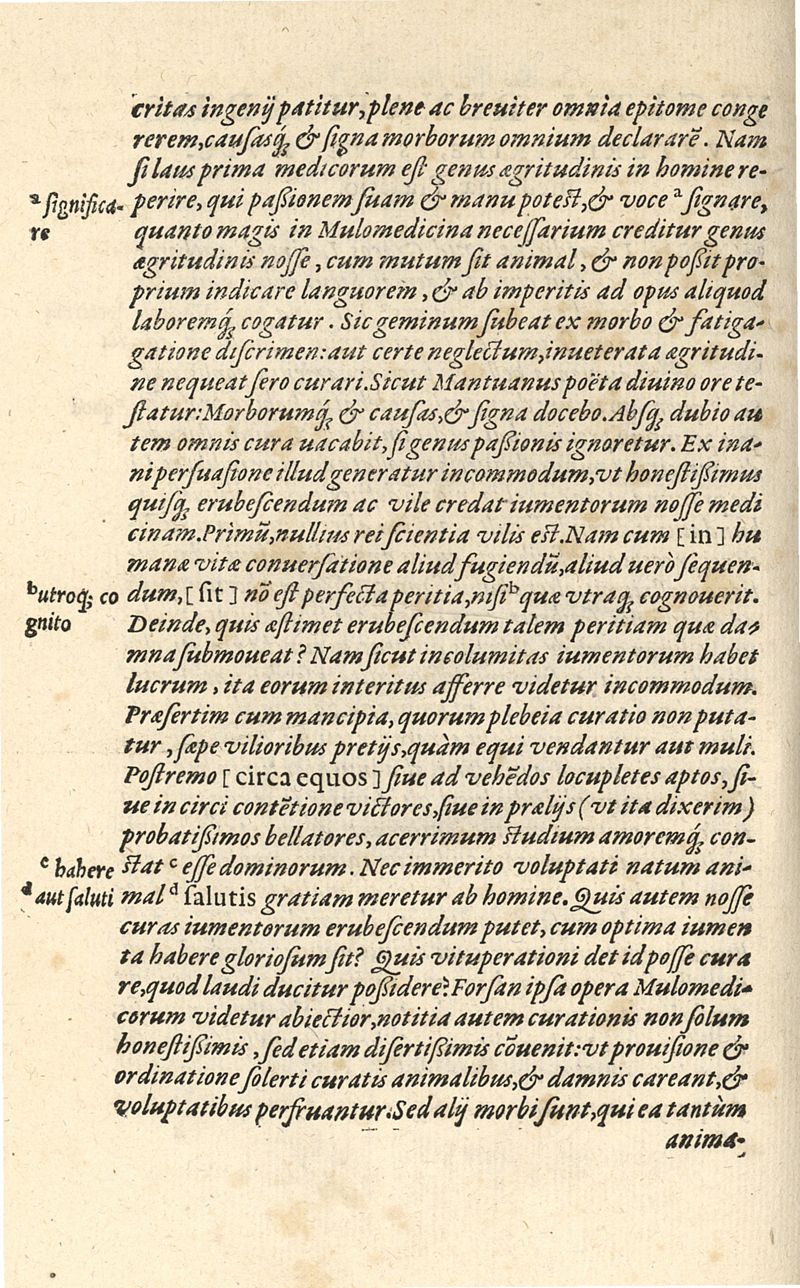 critas ingenij patitur, plene ac breuiter omnia epitome conge
rerem, causasq́; & signa morborum omnium declararẽ. Nam
si laus prima medicorum est genus ægritudinis in homine re-
perire, qui paßionem suam & manu potest, & voce ᵃ signare,
ᵃ significa-
re
quanto magis in Mulomedicina necessarium creditur genus
ægritudinis nosse, cum mutum sit animal, & non poßit pro-
prium indicare languorem, & ab imperitis ad opus aliquod
laboremq́; cogatur. Sic geminum subeat ex morbo & fatiga-
gatione discrimen: aut certe neglectum, inueterata ægritudi-
ne nequeat sero curari. Sicut Mantuanus poëta diuino ore te-
statur: Morborumq́; & causas, & signa docebo. Absq; dubio au
tem omnis cura uacabit, si genus paßionis ignoretur. Ex ina-
ni persuasione illud generatur incommodum, vt honestißimus
quisq; erubescendum ac vile credat iumentorum nosse medi
cinam. Primũ, nullius rei scientia vilis est. Nam cum [in] hu
manæ vitæ conuersatione aliud fugiendũ, aliud uerò sequen-
dum, [sit] nõ est perfecta peritia, nisi ᵇ quæ vtraq; cognouerit.
ᵇ utroq; co
gnito
Deinde, quis æstimet erubescendum talem peritiam quæ da-
mna submoueat? Nam sicut incolumitas iumentorum habet
lucrum, ita eorum interitus afferre videtur incommodum.
Præsertim cum mancipia, quorum plebeia curatio non puta-
tur, sæpe vilioribus pretijs, quàm equi vendantur aut muli.
Postremo [circa equos] siue ad vehẽdos locupletes aptos, si-
ue in circi contẽtione victores, siue in prælijs (vt ita dixerim)
probatißimos bellatores, acerrimum studium amoremq́; con-
stat ᶜ esse dominorum. Nec immerito voluptati natum ani-
ᶜ habere
mal ᵈ salutis gratiam meretur ab homine. Quis autem nosse
ᵈ aut saluti
curas iumentorum erubescendum putet, cum optima iumen
ta habere gloriosum sit? Quis vituperationi det id posse cura
re, quod laudi ducitur poßidere? Forsan ipsa opera Mulomedi-
corum videtur abiectior, notitia autem curationis non solum
honestißimis, sed etiam disertißimis cõuenit: vt prouisione &
ordinatione solerti curatis animalibus, & damnis careant, &
voluptatibus perfruantur. Sed alij morbi sunt, qui ea tantùm
anima-